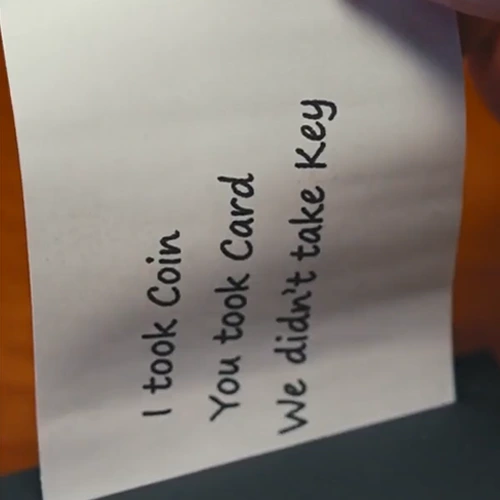 I took Coin
You took Card
We didn't take Key